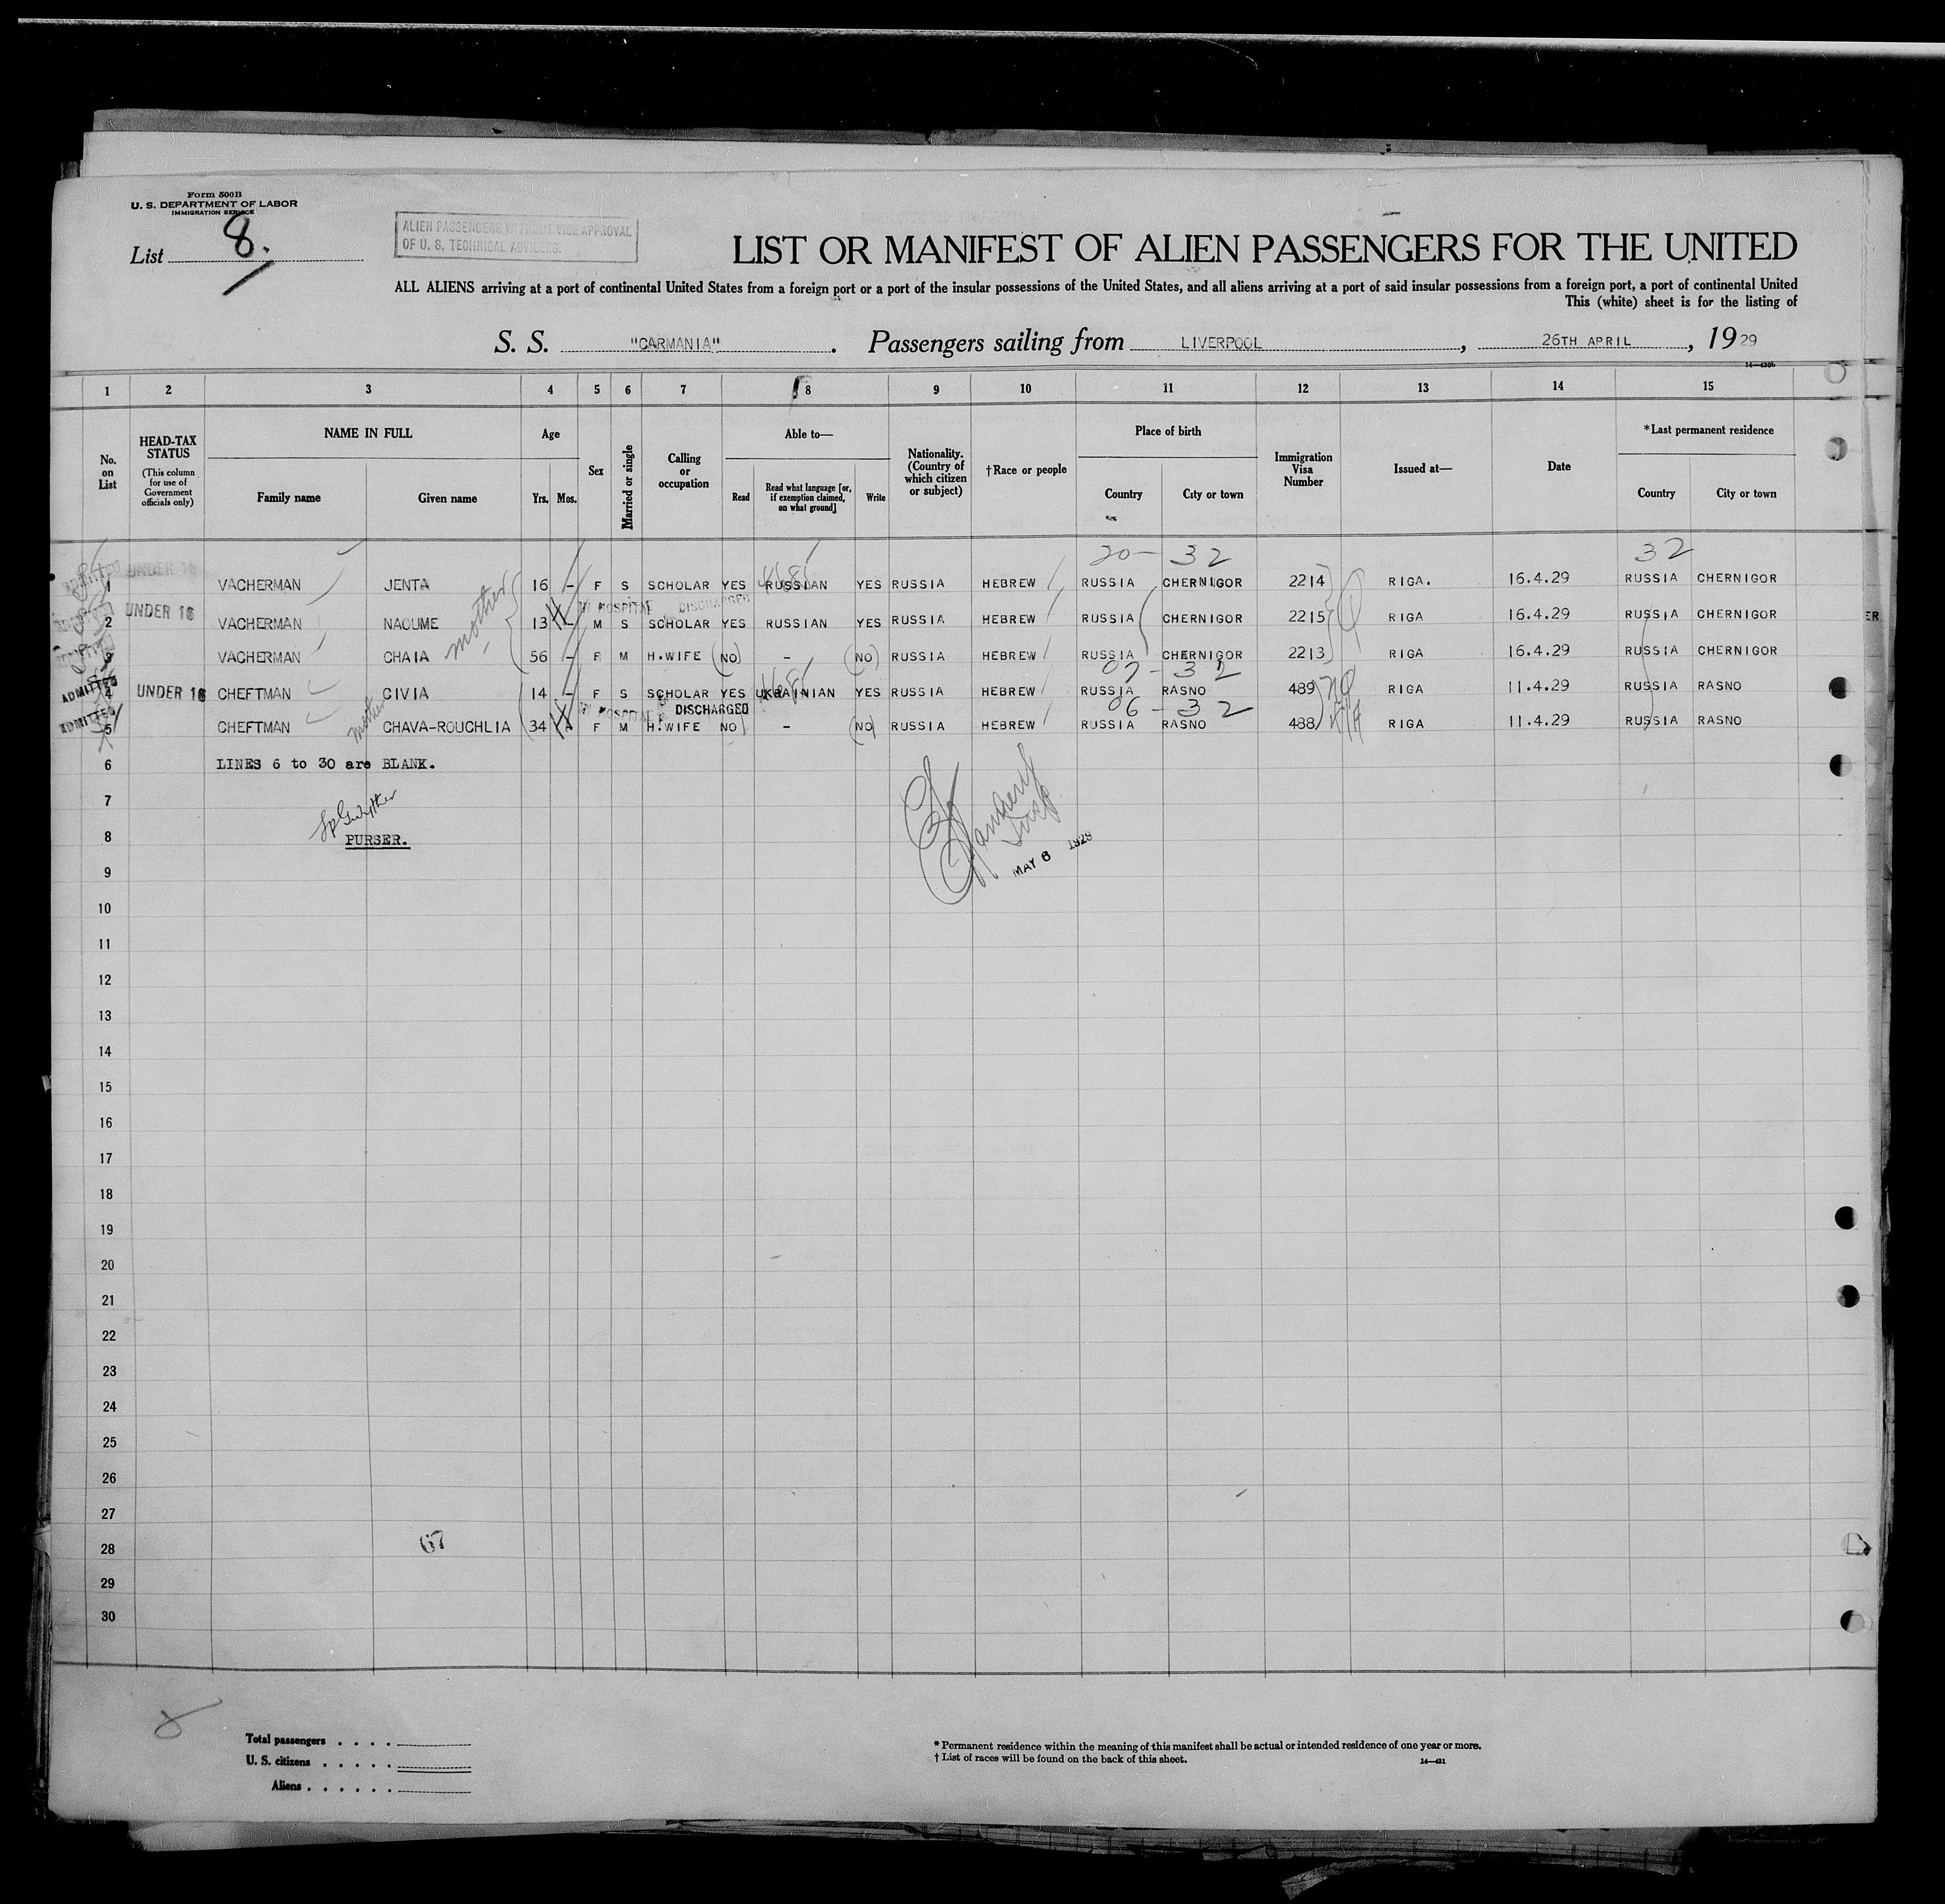 Form 500B
U. S. DEPARTMENT OF LABOR
IMMIGRATION SERVICE
List 8.
ALIEN PASSENGERS WITHOUT VISE APPROVAL
OF U. S. TECHNICAL ADVISERS.
LIST OR MANIFEST OF ALIEN PASSENGERS FOR THE UNITED
ALL ALIENS arriving at a port of continental United States from a foreign port or a port of the insular possessions of the United States, and all aliens arriving at a port of said insular possessions from a foreign port, a port of continental United
This (white) sheet is for the listing of
S. S. "CARMANIA". Passengers sailing from LIVERPOOL, 26TH APRIL, 1929
14—430b
1 2 3 4 5 6 7 8 9 10 11 12 13 14 15
No. on List
HEAD-TAX STATUS
(This column for use of Government officials only)
NAME IN FULL
Family name Given name
Age
Yrs. Mos.
Sex
Married or single
Calling or occupation
Able to—
Read Read what language [or, if exemption claimed, on what ground] Write
Nationality. (Country of which citizen or subject)
†Race or people
Place of birth
Country City or town
Immigration Visa Number
Issued at—
Date
*Last permanent residence
Country City or town
20- 32 32
1 UNDER 16 VACHERMAN JENTA 16 - F S SCHOLAR YES RUSSIAN YES RUSSIA HEBREW RUSSIA CHERNIGOR 2214 RIGA. 16.4.29 RUSSIA CHERNIGOR
IN HOSPITAL DISCHARGED
2 UNDER 16 VACHERMAN NAOUME 13 - M S SCHOLAR YES RUSSIAN YES RUSSIA HEBREW RUSSIA CHERNIGOR 2215 RIGA 16.4.29 RUSSIA CHERNIGOR
3 VACHERMAN CHAIA mother 56 - F M H.WIFE (NO) - (NO) RUSSIA HEBREW RUSSIA CHERNIGOR 2213 RIGA 16.4.29 RUSSIA CHERNIGOR
07-32
ADMITTED 4 UNDER 16 CHEFTMAN CIVIA 14 - F S SCHOLAR YES UKRAINIAN YES RUSSIA HEBREW RUSSIA RASNO 489 RIGA 11.4.29 RUSSIA RASNO
IN HOSPITAL DISCHARGED 06-32
ADMITTED 5 CHEFTMAN mother CHAVA-ROUCHLIA 34 - F M H.WIFE NO - (NO) RUSSIA HEBREW RUSSIA RASNO 488 RIGA 11.4.29 RUSSIA RASNO
6 LINES 6 to 30 are BLANK.
7
8 PURSER.
MAY 6 1929
9
10
11
12
13
14
15
16
17
18
19
20
21
22
23
24
25
26
27
28 67
29
30
Total passengers . . . .
U. S. citizens . . . . .
Aliens . . . . . .
* Permanent residence within the meaning of this manifest shall be actual or intended residence of one year or more.
† List of races will be found on the back of this sheet.
14—431